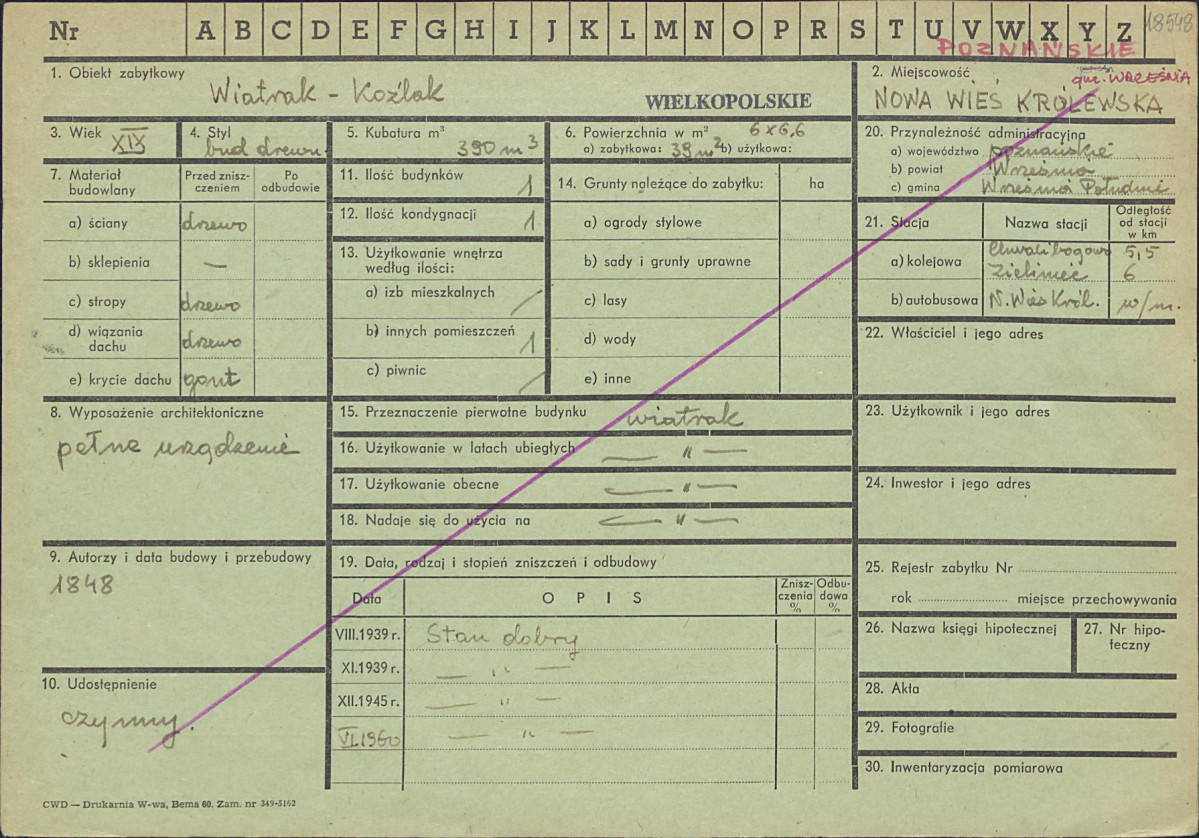 Nr A B C D E F G H I J K L M N O P R S T U V W X Y Z 18548
POZNAŃSKIE
1. Obiekt zabytkowy
Wiatrak - Koźlak
WIELKOPOLSKIE
2. Miejscowość
gm. WRZEŚNIA
NOWA WIEŚ KRÓLEWSKA
3. Wiek XIX
4. Styl
bud drewn.
5. Kubatura m³
390 m3
6. Powierzchnia w m² 6x6,6
a) zabytkowa: 39 m2 b) użytkowa:
7. Materiał budowlany
Przed znisz-
czeniem
Po
odbudowie
a) ściany drzewo
b) sklepienia —
c) stropy drzewo
d) wiązania
dachu drzewo
e) krycie dachu gont
8. Wyposażenie architektoniczne
pełne urządzenie
9. Autorzy i data budowy i przebudowy
1848
10. Udostępnienie
czynny.
11. Ilość budynków 1
12. Ilość kondygnacji 1
13. Użytkowanie wnętrza
według ilości:
a) izb mieszkalnych /
b) innych pomieszczeń 1
c) piwnic /
14. Grunty należące do zabytku: ha
a) ogrody stylowe
b) sady i grunty uprawne
c) lasy
d) wody
e) inne
15. Przeznaczenie pierwotne budynku wiatrak
16. Użytkowanie w latach ubiegłych — " —
17. Użytkowanie obecne — " —
18. Nadaje się do użycia na — " —
19. Data, rodzaj i stopień zniszczeń i odbudowy
Data
O P I S
Znisz-
czenia
%
Odbu-
dowa
%
VIII.1939 r. Stan dobry
XI.1939 r. — " —
XII.1945 r. — " —
VI.1960 — " —
20. Przynależność administracyjna
a) województwo poznańskie
b) powiat Września
c) gmina Września Południe
21. Stacja
Nazwa stacji
Odległość
od stacji
w km
a) kolejowa Chwalibogowo 5,5
Zieliniec 6
b) autobusowa N. Wieś Król. w/m.
22. Właściciel i jego adres
23. Użytkownik i jego adres
24. Inwestor i jego adres
25. Rejestr zabytku Nr
rok miejsce przechowywania
26. Nazwa księgi hipotecznej
27. Nr hipo-
teczny
28. Akta
29. Fotografie
30. Inwentaryzacja pomiarowa
CWD — Drukarnia W-wa, Bema 60. Zam. nr 349-5162